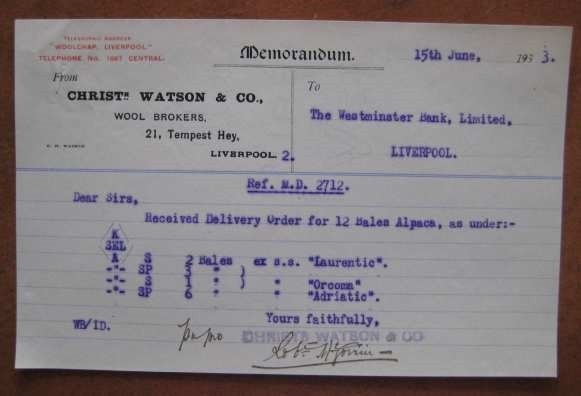 TELEGRAPHIC ADDRESS
"WOOLCHAP, LIVERPOOL"
TELEPHONE No. 1667 CENTRAL.
Memorandum.
15th June, 1933.
From
CHRISTR. WATSON & CO.,
WOOL BROKERS,
21, Tempest Hey,
LIVERPOOL. 2.
To
The Westminster Bank, Limited,
LIVERPOOL.
Ref. M.D. 2712.
Dear Sirs,
Received Delivery Order for 12 Bales Alpaca, as under:-
K
SEL
A S 2 Bales ex s.s. "Laurentic".
-"- SP 3 " )
-"- S 1 " ) " "Orcoma"
-"- SP 6 " " "Adriatic".
Yours faithfully,
WB/ID.
CHRISTR WATSON & CO